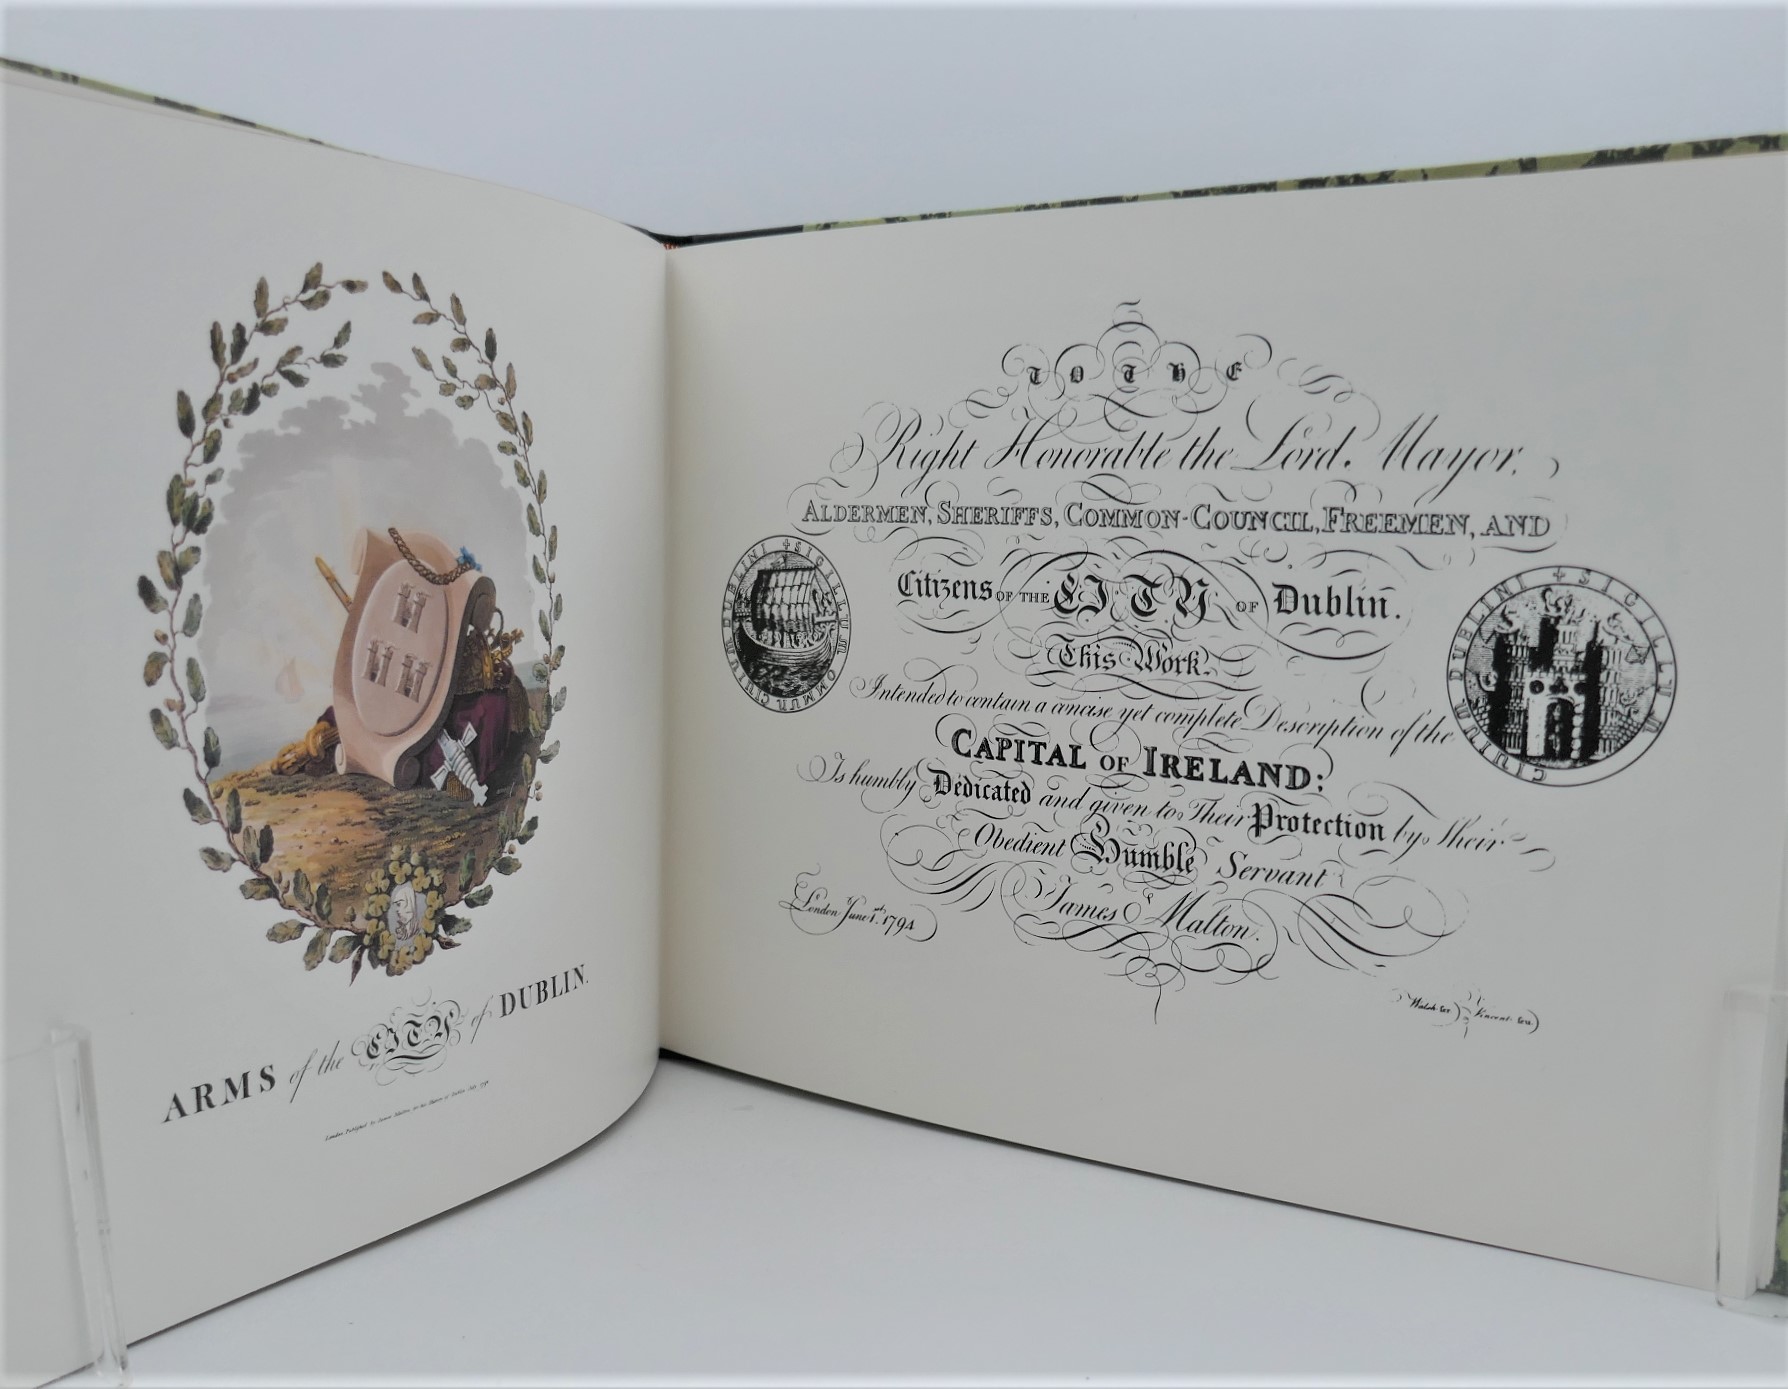 ARMS of the CITY of DUBLIN.
London Published by James Malton
TO THE
Right Honorable the Lord Mayor,
ALDERMEN, SHERIFFS, COMMON-COUNCIL, FREEMEN, AND
Citizens OF THE CITY OF Dublin.
This Work,
Intended to contain a concise yet complete Description of the
CAPITAL OF IRELAND;
Is humbly Dedicated and given to Their Protection by Their
Obedient Humble Servant
James Malton.
London June 1st. 1794
SIGILLUM
CIUIUM DUBLINI
SIGILLUM
CIUIUM DUBLINI